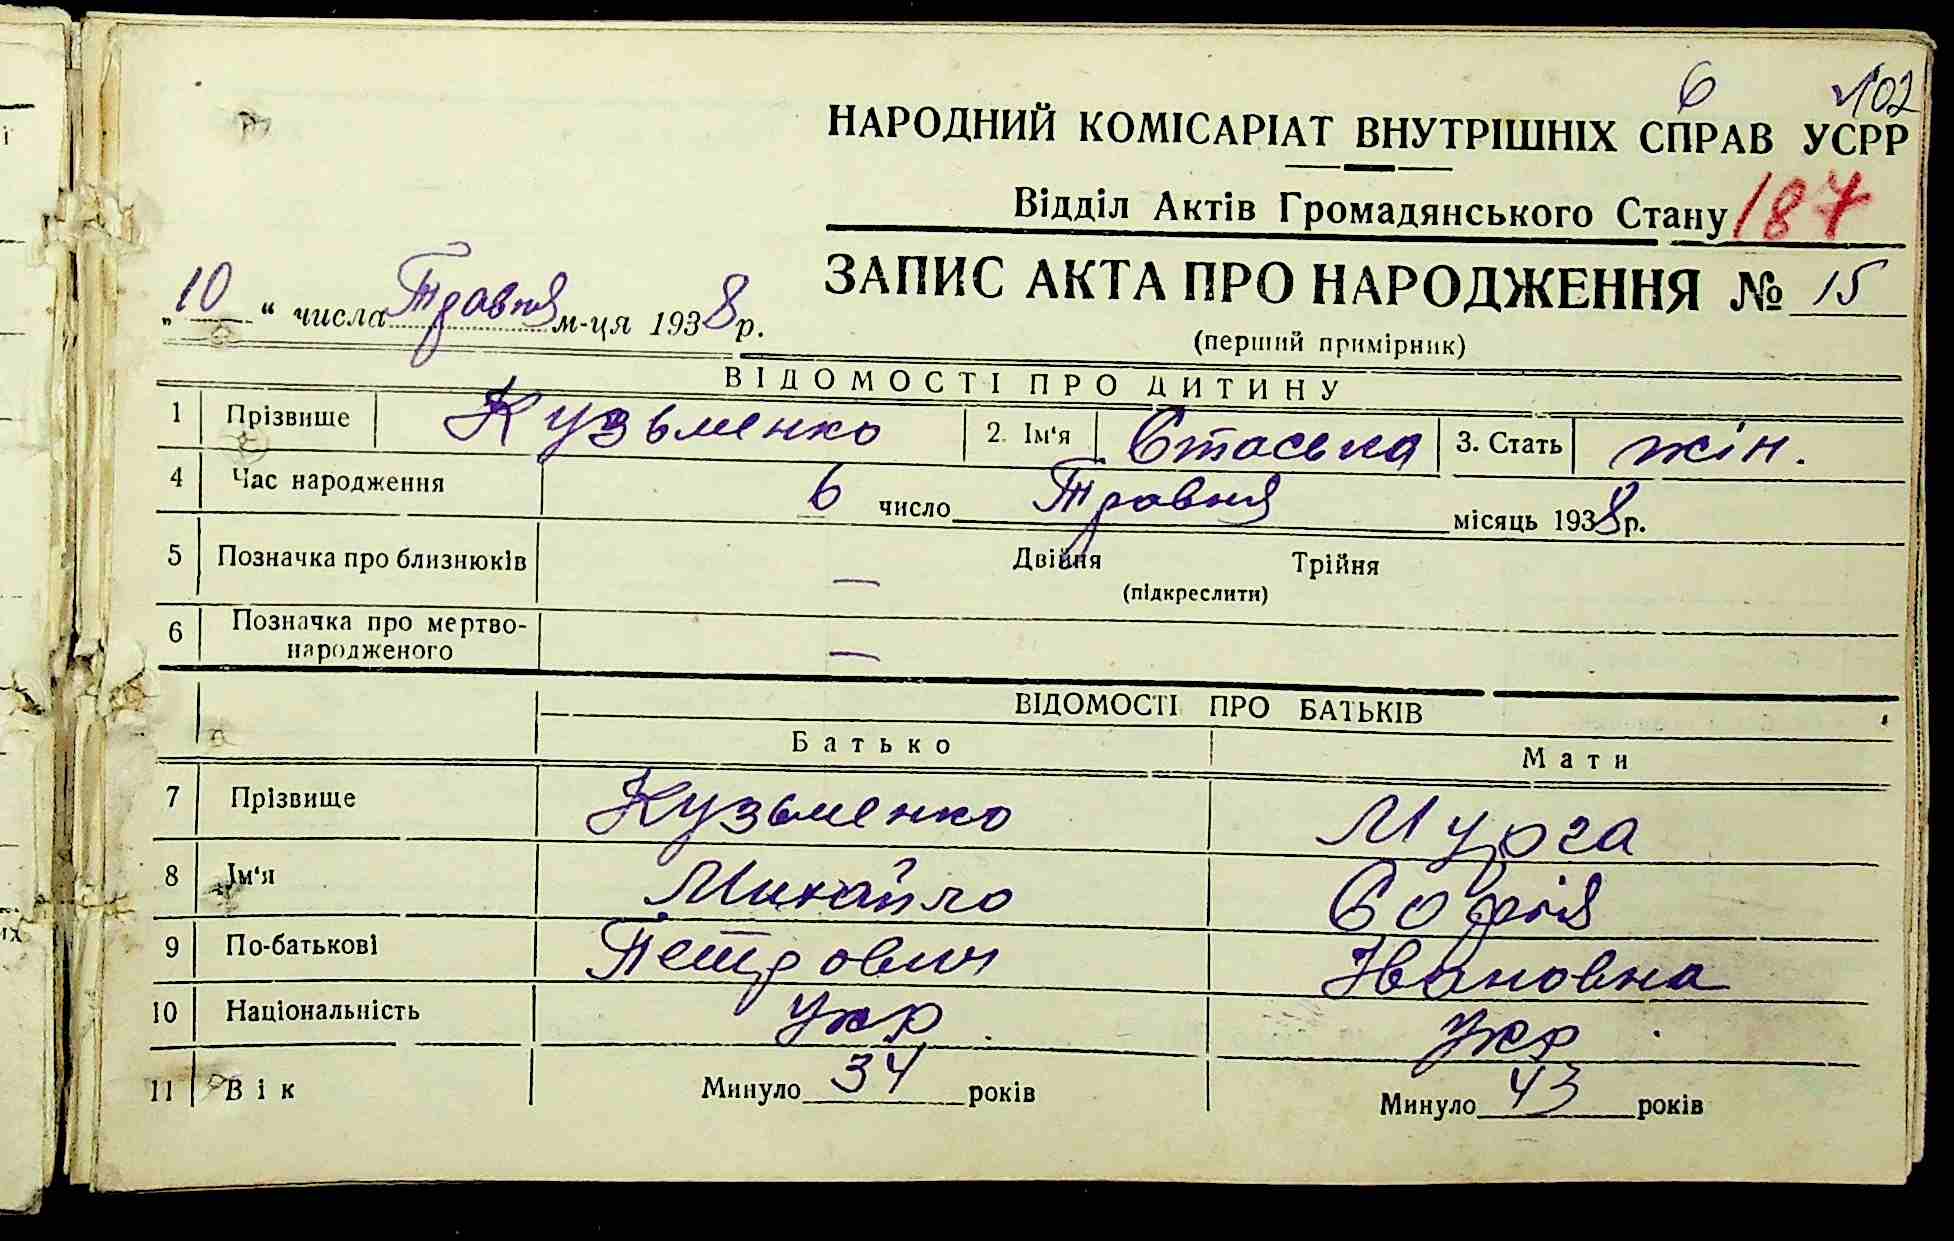 6 102
НАРОДНИЙ КОМІСАРІАТ ВНУТРІШНІХ СПРАВ УСРР
Відділ Актів Громадянського Стану 187
ЗАПИС АКТА ПРО НАРОДЖЕННЯ № 15
„10“ числа Травня м-ця 1938 р.
(перший примірник)
ВІДОМОСТІ ПРО ДИТИНУ
1 Прізвище Кузьменко 2. Ім'я Стаська 3. Стать жін.
4 Час народження 6 число Травня місяць 1938 р.
5 Позначка про близнюків — Двійня Трійня
(підкреслити)
6 Позначка про мертво-
народженого —
ВІДОМОСТІ ПРО БАТЬКІВ
Батько Мати
7 Прізвище Кузьменко Мурга
8 Ім'я Михайло Софія
9 По-батькові Петрович Івановна
10 Національність Укр Укр.
11 Вік Минуло 34 років Минуло 43 років